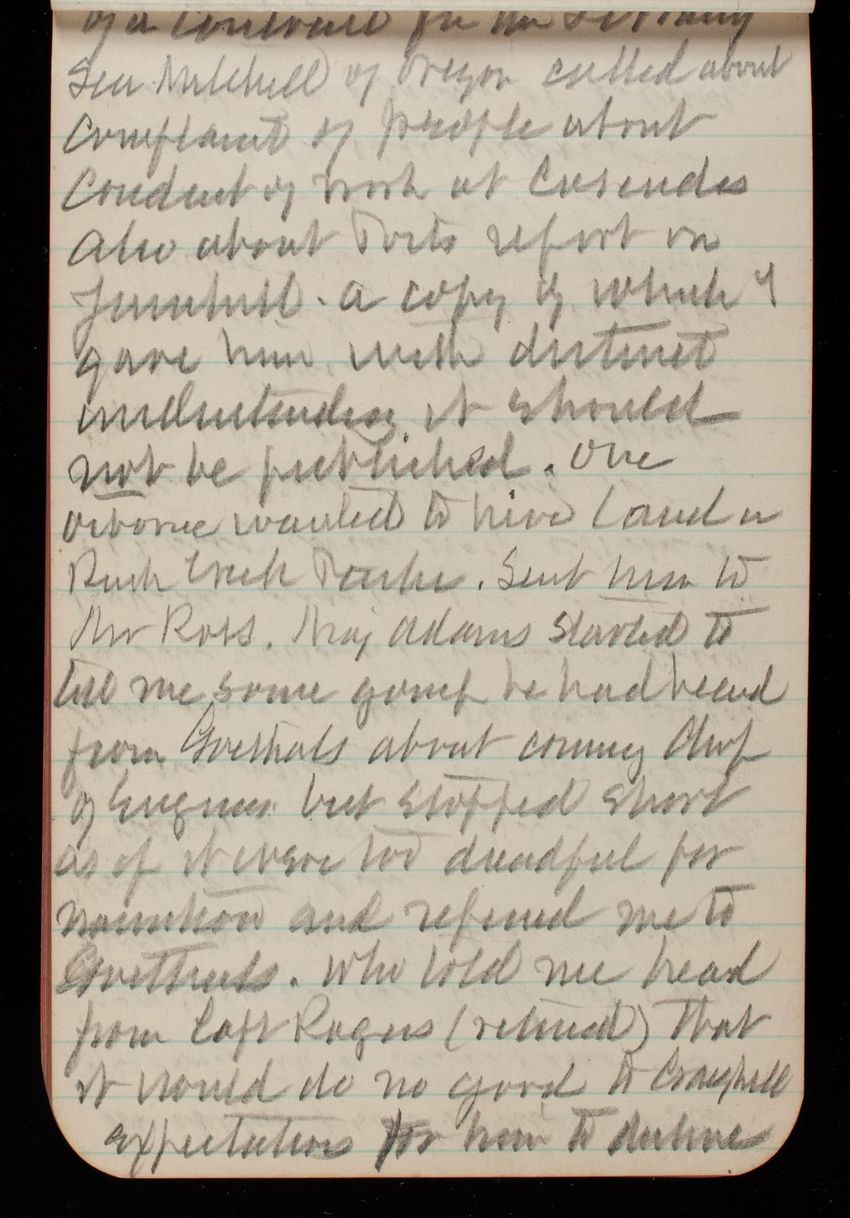 of a contract for the Secretary
Sen Mitchell of Oregon called about
complaint of people about
conduct of work at Cascades
Also about Posts report on
a copy of which I
gave him with distinct
understanding it should
not be published. One
Osborne wanted to hire land in
Rock Creek Park. Sent him to
Mr Ross. Maj Adams started to
tell me some gossip he had heard
from Goethals about coming Chief
of Engineers but stopped short
as if it were too dreadful for
and referred me to
Goethals. Who told me heard
from Capt Rogers (retired) That
it would do no good to Craighill
expectations for him to decline